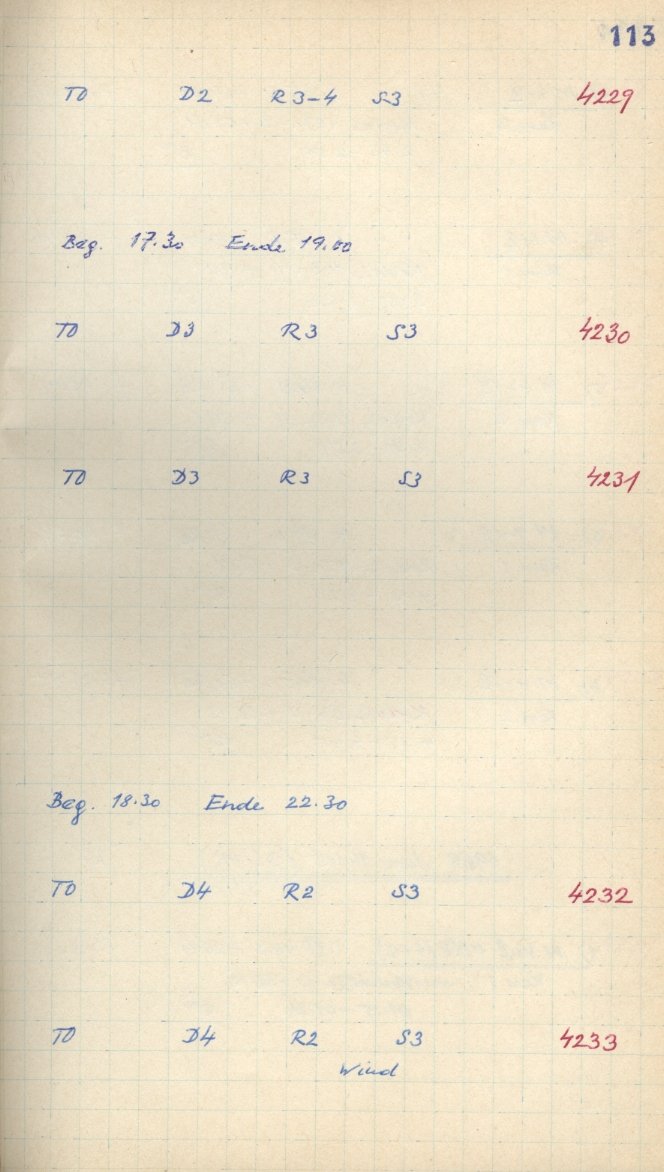 113
TO D2 R3-4 S3 4229
Beg. 17.30 Ende 19.00
TO D3 R3 S3 4230
TO D3 R3 S3 4231
Beg. 18.30 Ende 22.30
TO D4 R2 S3 4232
TO D4 R2 S3 4233
Wind